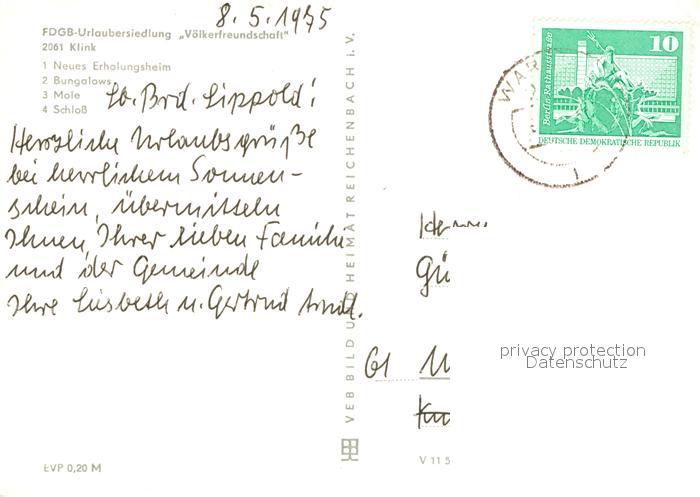 8. 5. 1975
FDGB-Urlaubersiedlung „Völkerfreundschaft"
2061 Klink
1 Neues Erholungsheim
2 Bungalows
3 Mole
4 Schloß
Lb. Brd. Lippold!
Herzliche Urlaubsgrüße
bei herrlichem Sonnen-
schein, übermitteln
Ihnen, Ihrer lieben Familie
und der Gemeinde
Ihre Lisbeth u. Gertrud
EVP 0,20 M
VEB BILD UND HEIMAT REICHENBACH i. V.
WAR
10
Berlin-Rathausstraße
DEUTSCHE DEMOKRATISCHE REPUBLIK
Herrn
Gü
61
V 11 5
privacy protection
Datenschutz